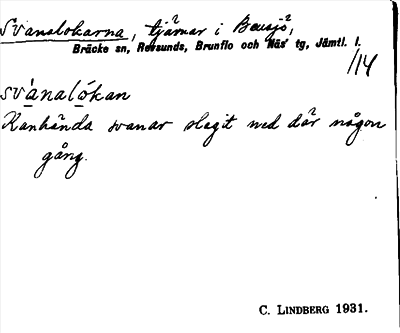 Svanalokarna, tjärnar i Bensjö,
Bräcke sn, Revsunds, Brunflo och Näs' tg, Jämtl. l.
1/14
svànalókan
Kanhända svanar slagit ned där någon
gång.
C. LINDBERG 1931.